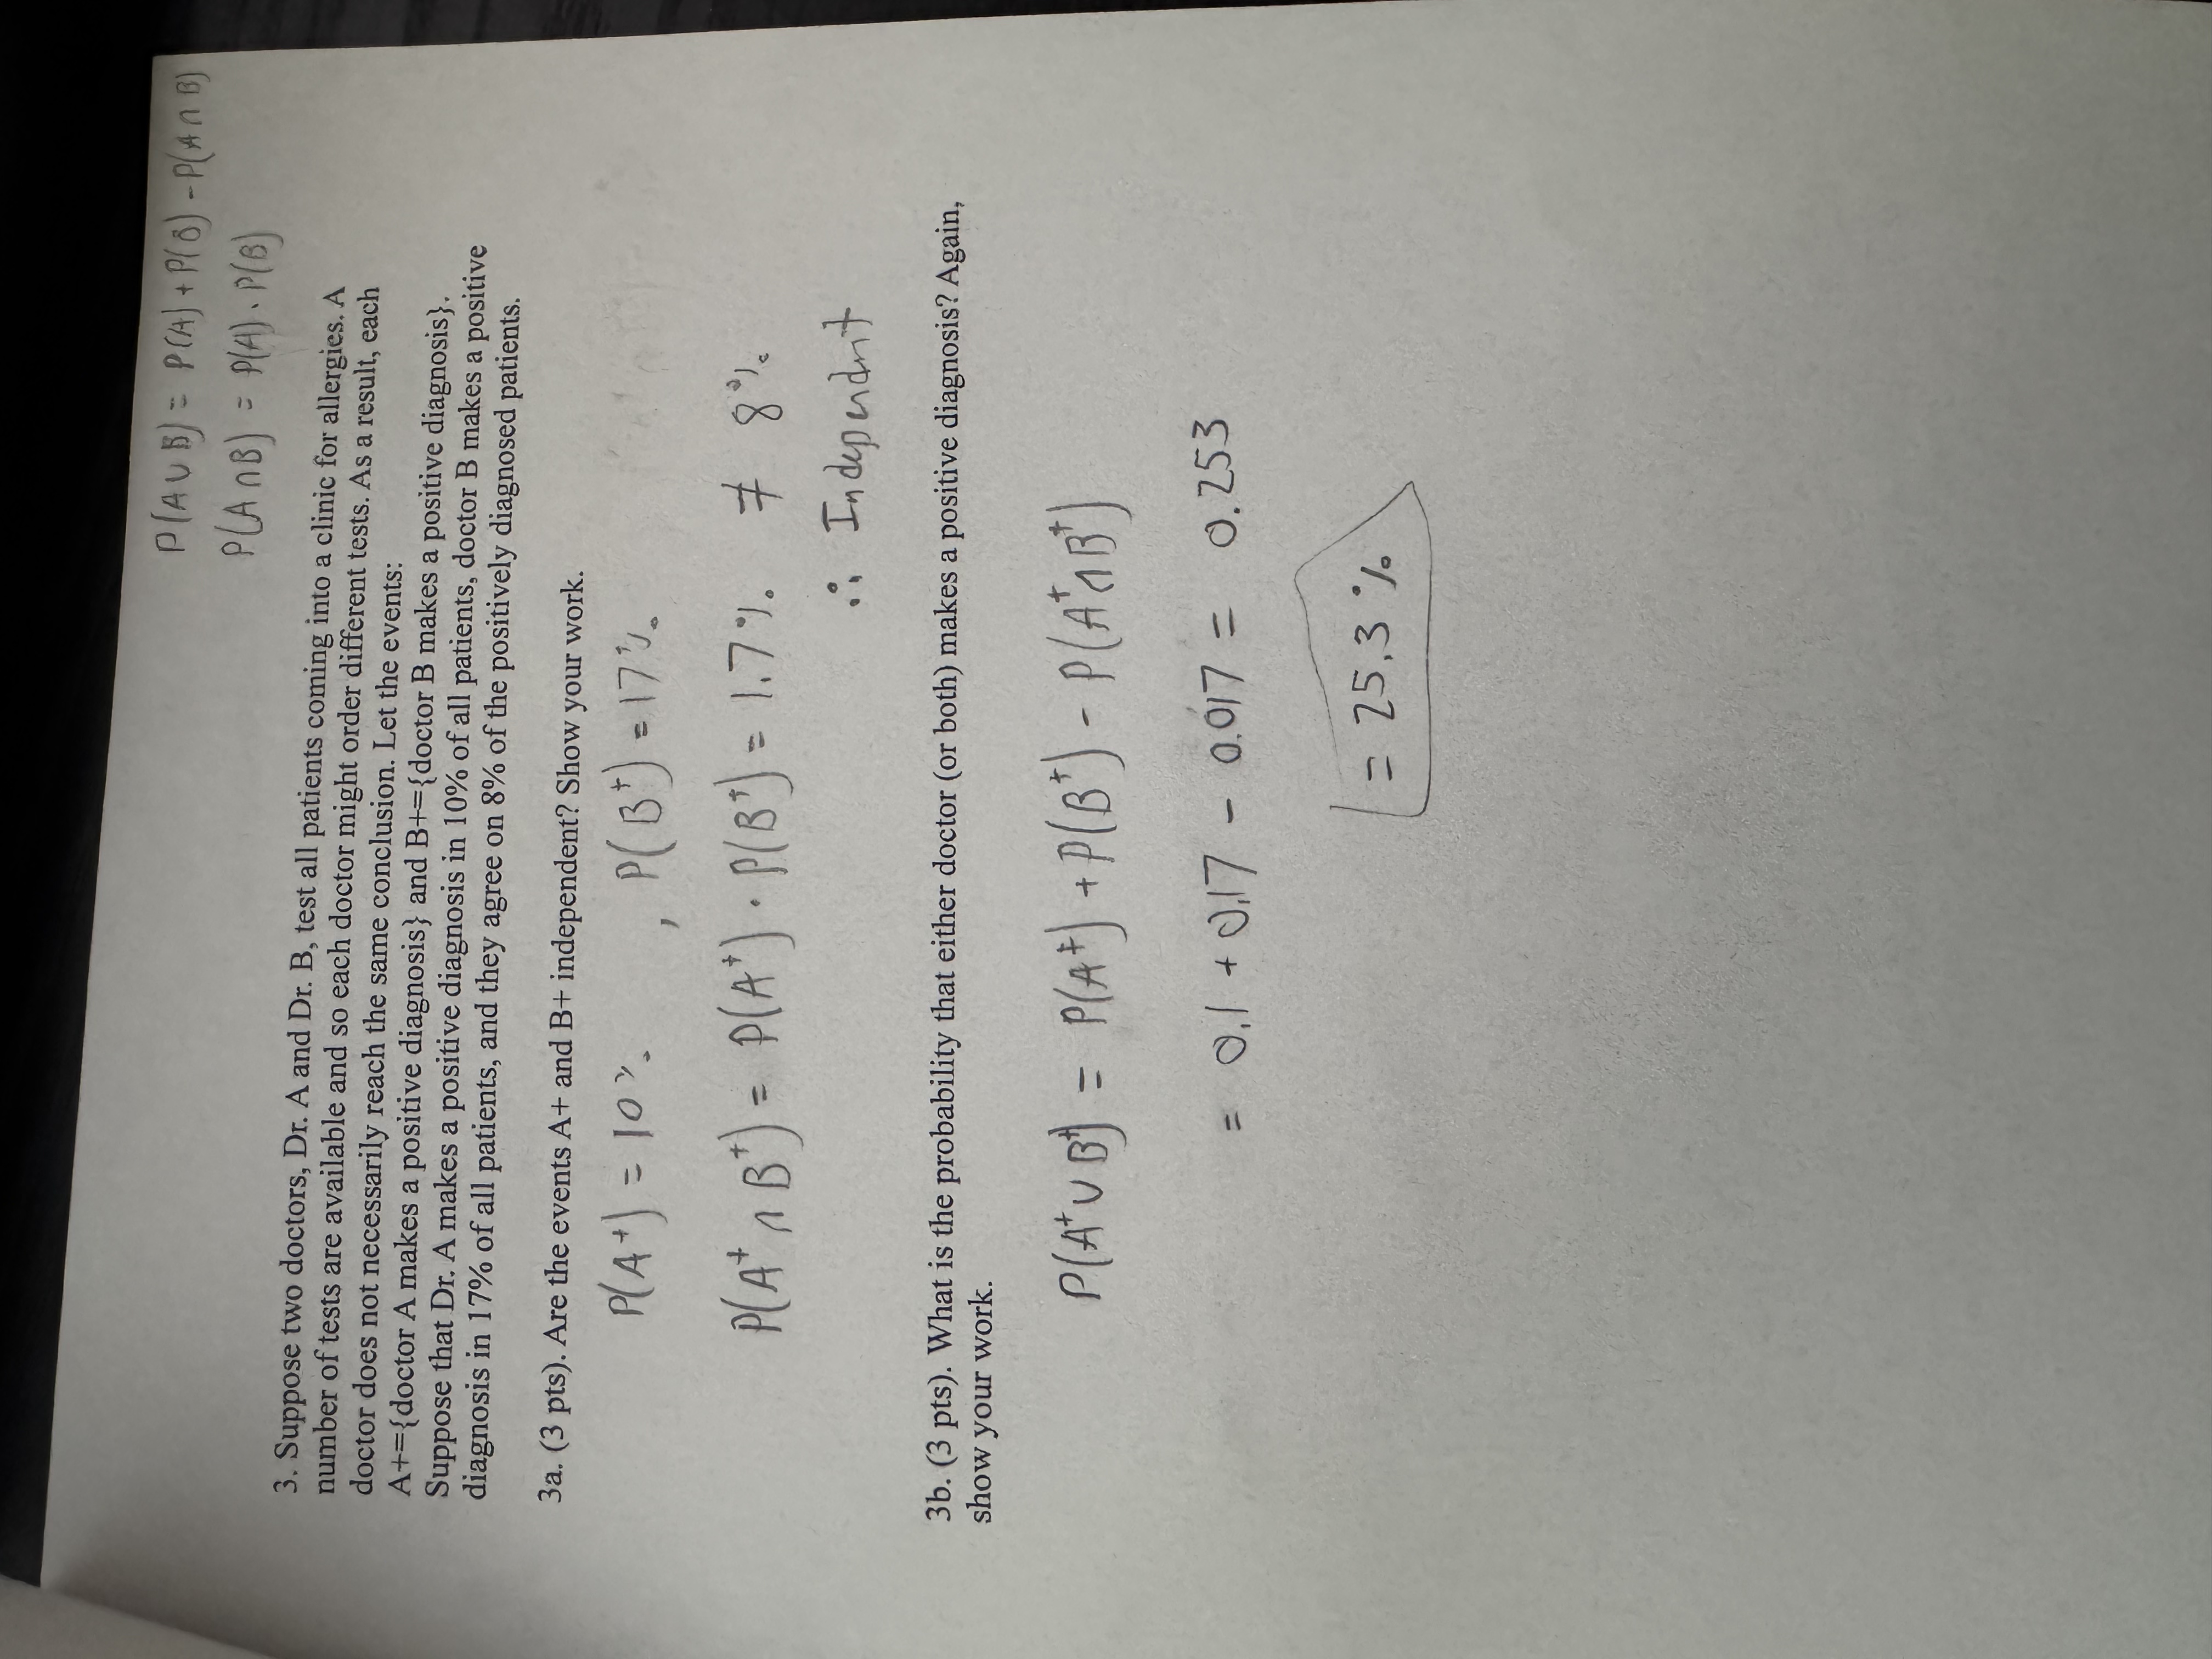 P(A ∪ B) = P(A) + P(B) - P(A ∩ B)
P(A ∩ B) = P(A) · P(B)
3. Suppose two doctors, Dr. A and Dr. B, test all patients coming into a clinic for allergies. A
number of tests are available and so each doctor might order different tests. As a result, each
doctor does not necessarily reach the same conclusion. Let the events:
A+={doctor A makes a positive diagnosis} and B+={doctor B makes a positive diagnosis}.
Suppose that Dr. A makes a positive diagnosis in 10% of all patients, doctor B makes a positive
diagnosis in 17% of all patients, and they agree on 8% of the positively diagnosed patients.
3a. (3 pts). Are the events A+ and B+ independent? Show your work.
P(A⁺) = 10%, P(B⁺) = 17%
P(A⁺ ∩ B⁺) = P(A⁺) · P(B⁺) = 1.7% ≠ 8%
∴ Independent
3b. (3 pts). What is the probability that either doctor (or both) makes a positive diagnosis? Again,
show your work.
P(A⁺ ∪ B⁺) = P(A⁺) + P(B⁺) - P(A⁺ ∩ B⁺)
= 0.1 + 0.17 - 0.017 = 0.253
= 25.3%